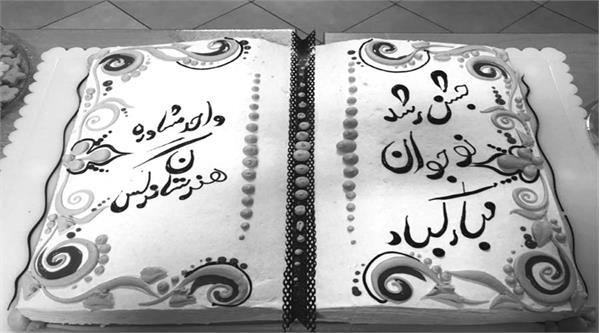 جشن رشد
نوجوان
مبارکباد
واحد مشاوره
هنرستان نرگس